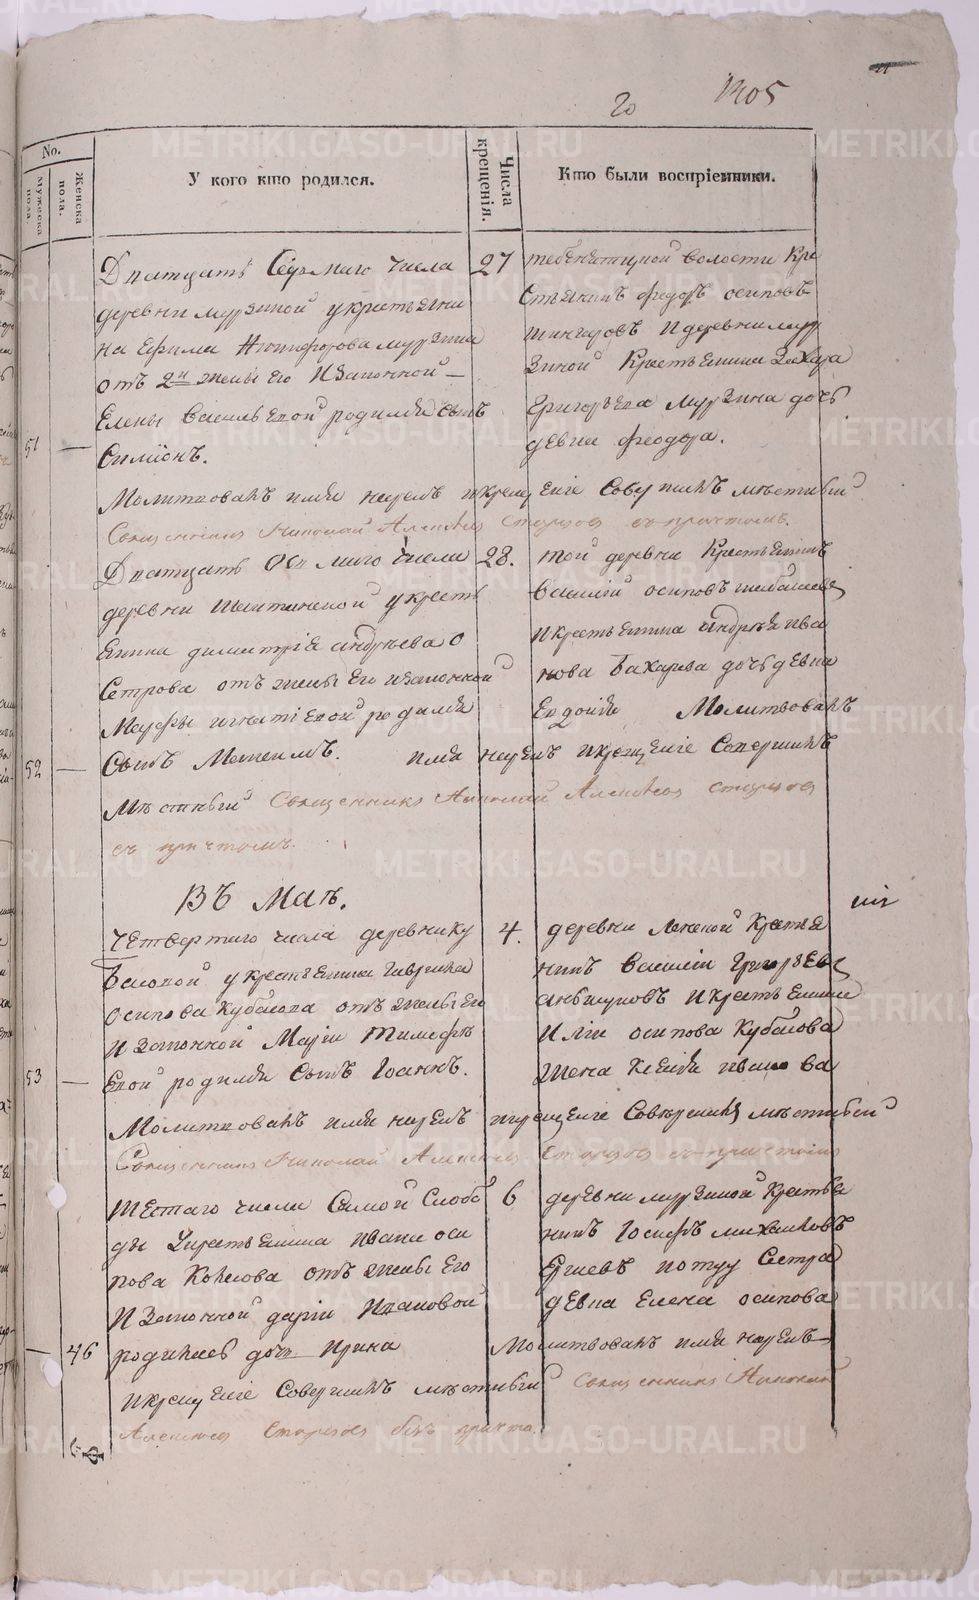 20 1405
No.
Мужеска пола.
Женска пола.
У кого кто родился.
Числа крещенія.
Кто были воспріемники.
Дватцать Седьмаго числа
деревни мурзиной укрестьяни
на Ефима Никифорова мурзина
отъ 2й жены Его Изаконной
Елены Васильевой родился сынъ
51 Симіонъ.
27
тебенятской волости Кре
стьянинъ федоръ осиповъ
идеревни мур
зиной Крестьянина Захара
Григорьева мурзина дочь
девка феодора.
Молитвовалъ имя нарекъ икрещеніе Совершилъ местный
Священникъ Николай Алексеев с причтомъ.
Дватцать Осьмаго числа
деревни укресть
янина димитрія андреева О
сетрова отъ жены Его изаконной
Марфы игнатіевой родился
52 Сынъ Максимъ.
28.
той деревни Крестьянинъ
василій осиповъ
икрестьянина андрея ива
нова Бахарева дочь девка
Евдокія Молитвовалъ
имя нарекъ икрещеніе Совершилъ
местный Священникъ Николай Алексеев
съ причтомъ.
Въ Маѣ.
Четвертаго числа деревни ку
басовой укрестьянина гаврила
осипова Кубасова отъ жены Его
Изаконной Маріи Тимофе
53 Евой родился Сынъ Іоаннъ.
4.
деревни Крестья
нинъ Василій Григорьев
икрестьянина
Иліи осипова Кубасова
жена Ксенія иванова
Молитвовалъ имя нарекъ икрещеніе Совершилъ местный
Священникъ Николай Алексеев с причтомъ
шестаго числа Самой Слобо
ды Укрестьянина ивана оси
пова отъ жены Его
Изаконной даріи Ивановой
46 родилась дочь Ирина
6
деревни мурзиной Крестья
нинъ Іосифъ михайловъ
потуу Сестра
девка Елена осипова
Молитвовалъ имя нарекъ
икрещеніе Совершилъ местный Священникъ Николай
Алексеев безъ причта.
METRIKI.GASO-URAL.RU